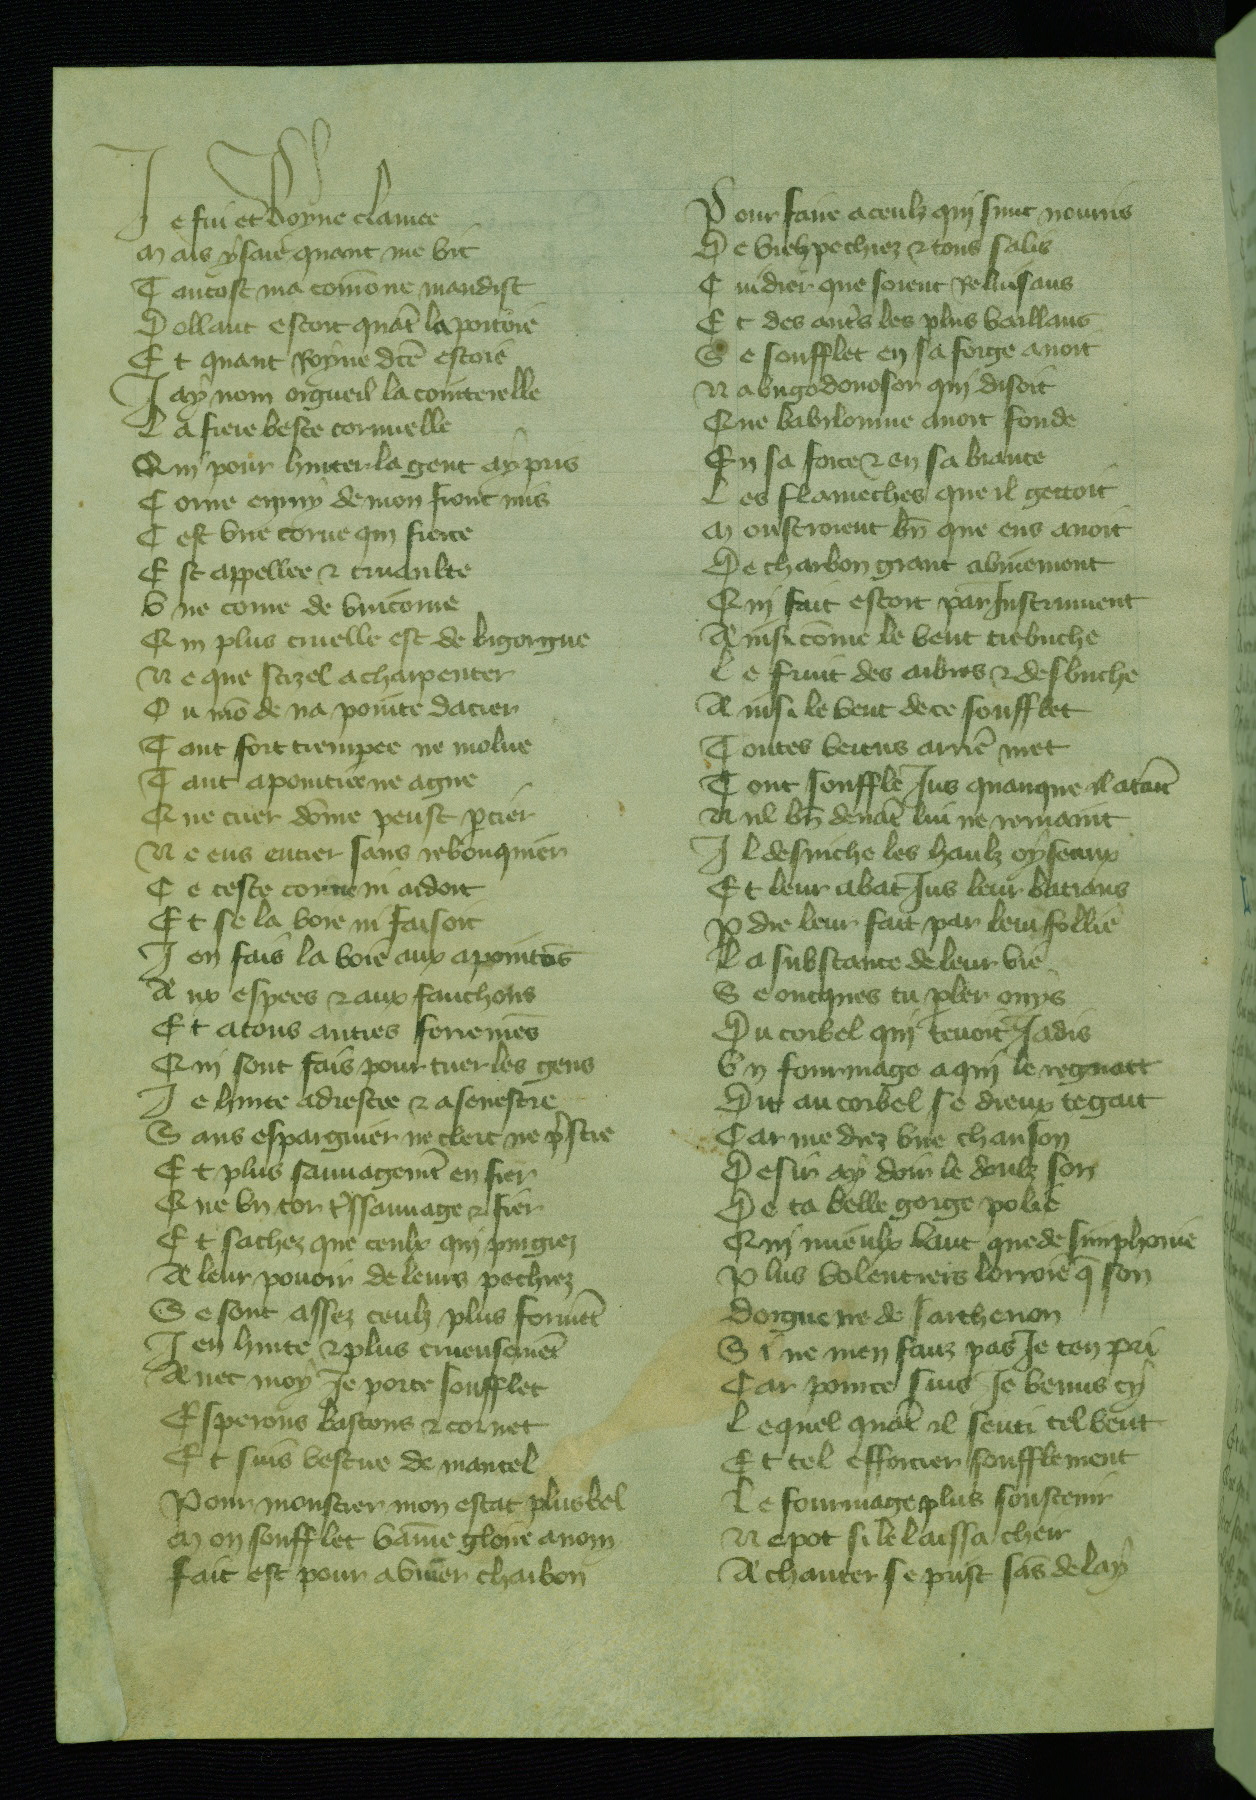 Je fui et Royne clamee
Mais ysaie quant me vit
Tantost ma corōne maudist
Dollant estoit quāt la portoie
Et quant Royne dcē estoie
Jay nom orgueil la cointerelle
La fiere beste cornuelle
Qui pour hurter la gent ay pris
Corne enmy de mon front mis
Cest vne corne qui fierte
Est appellee & cruaulte
Vne corne de vnicorne
Qui plus cruelle est de bigorgne
Ne que sizel a charpenter
Ou mōde na pointe dacier
Tant fort trempee ne molue
Tant apointiee ne ague
Que cuer dōme peust pcier
Ne ens entrer sans rebouquier
Ce ceste corne ni aidoit
Et se la voie ni faisoit
Jen fais la voie aux apointōs
Aux espees & aux fauchons
Et a tous autres ferremēs
Qui sont fais pour tuer les gens
Je hurte a destre & a senestre
Sans espargnier ne clerc ne pstre
Et plus sauuagemēt en fier
Que vn tor trssauuage & fier
Et sachez que ceulx qui purgiez
A leur pouoir de leurs pechiez
Se sont assez ceulz plus formēt
Jen hurte & plus crueusemēt
Auec moy Je porte soufflet
Esperons bastons & cornet
Et suis vestue de mantel
Pour monstrer mon estat plus bel
Mon soufflet vaine gloire a nom
Fait est pour aviuer charbon
Pour faire a ceulz qui sont nourris
De vielz pechiez & tous salis
Cuidier que soient Reluisans
Et des autrs les plus vaillans
Se soufflet en sa forge auoit
Nabugodonosor qui disoit
Que babilonne auoit fonde
En sa force & en sa biaute
Les flameches que il gettoit
Monstroient bn que ens auoit
De charbon grant aviuement
Qui fait estoit par Instrument
Ainsi cōme le vent trebuche
Le fruit des arbres & desbuche
Ainsi le vent de ce soufflet
Toutes vertus arriē met
Tout souffle Jus quanque il ataīt
Nul bn deuāt lui ne remaint
Il desniche les haulz oyseaux
Et leur abat Jus leur batians
Pdre leur fait par leur follie
La substance de leur vie
Se oncques tu pler oiys
Du corbel qui tenoit Jadis
Vn fourmage a qui le regnart
Dit au corbel se dieux te gart
Car me diez vne chanson
Desir ay doir le doulz son
De ta belle gorge polie
Qui mieulx vaut que de simphonie
Plus volentiers lorroie q̄ son
Dorgue ne de Jartheron
Si ne men fauz pas Je ten pri
Car pour ce suis Je venus cy
Lequel quāt il senti tel vent
Et tel efforcier soufflement
Le fourmage plus soustenir
Ne pot si le laissa cheir
A chanter se prist sās delay